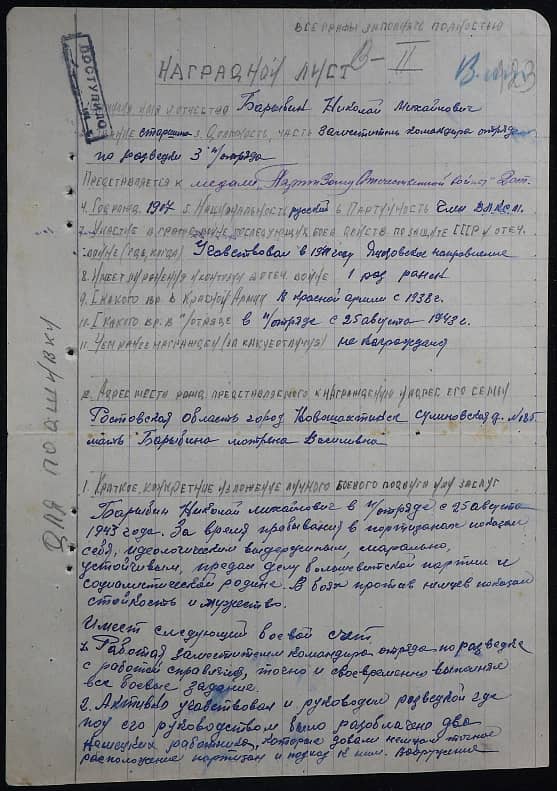 ВСЕ ГРАФЫ ЗАПОЛНЯТЬ ПОЛНОСТЬЮ
НАГРАДНОЙ ЛИСТ
О-II
123
ПОСТУПИЛО
ИМЯ И ОТЧЕСТВО Барыбин Николай Михайлович
старшина 3. Должность, часть Заместитель командира отряда
по разведки 3 п/отряда
Представляется к медали „Партизану Отечественной войны"
4. Год рожд. 1917 5. Национальность русский 6 Партийность Член ВЛКСМ.
7. Участие в гражд. войне, последующих боев. действ. по защите СССР и отеч.
войне (где, когда) Участвовал в 1941 году направление
8. Имеет ли ранения и контузии в отеч. войне 1 раз ранен
9. С какого вр. в Красной Армии В красной армии с 1938 г.
10. С какого вр. в п/отряде в п/отряде с 25 августа 1943 г.
11. Чем ранее награжден (за какие отличия) не награждался
12. Адрес представляемого к награждению и адрес его семьи
Ростовская область город Новошахтинск
мать Барыбина Мотрена
ДЛЯ ПОДШИВКИ
1. Краткое, конкретное изложение личного боевого подвига или заслуг
Барыбин Николай Михайлович в п/отряде с 25 августа
1943 года. За время пребывания в партизанах показал
себя, идеологическим выдержанным, морально,
устойчивым, предан делу большевистской партии и
социалистической родине. В боях против немцев показал
стойкость и мужество.
Имеет следующий боевой счет
1. Работая заместителем командира отряда по разведке
с работой справлялся, точно и своевременно выполнял
все боевые задание.
2. Активно участвовал и руководил разведкой где
под его руководством было разоблачено два
немецких работника, которые давали немцам точное
расположение партизан и подход к ним. Вооружение